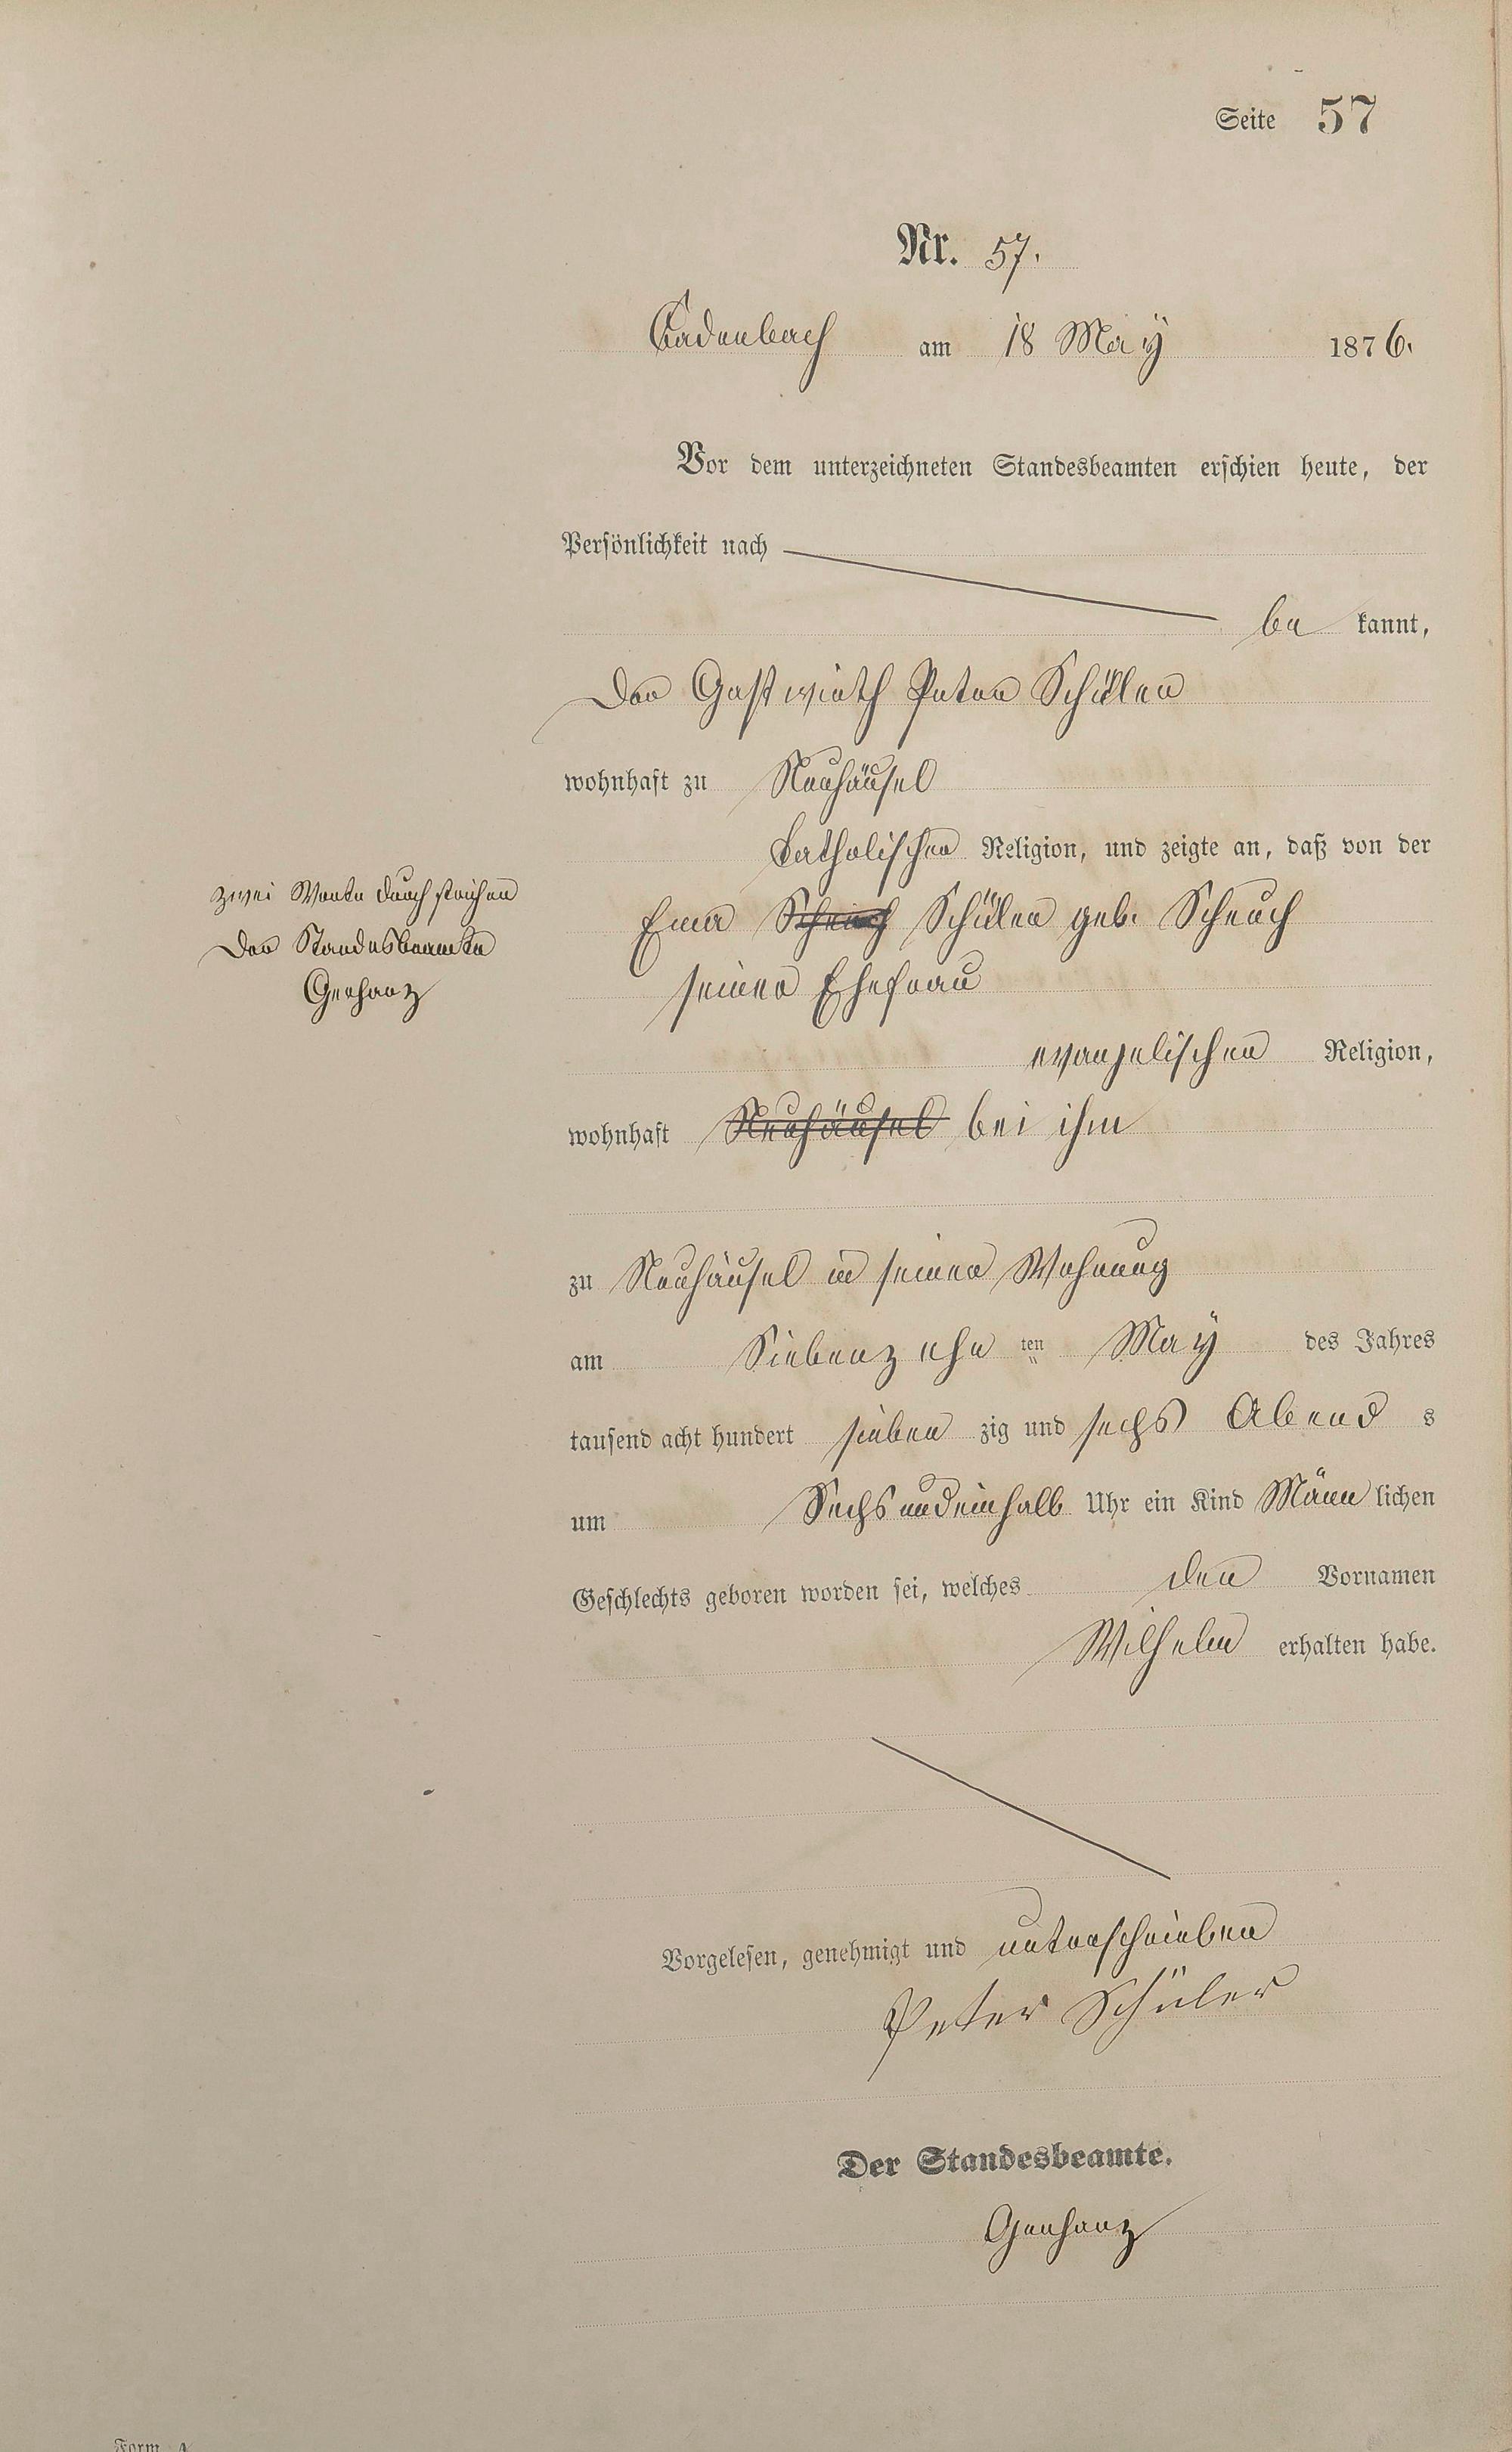 Seite 57
Nr. 57.
Cadenbach am 18 Maÿ 1876.
Vor dem unterzeichneten Standesbeamten erschien heute, der
Persönlichkeit nach
be kannt,
der Gastwirth Peter Schüler
wohnhaft zu Neuhäusel
katholischer Religion, und zeigte an, daß von der
zwei Worte durchstrichen
Der Standesbeamte
Gerharz
Ema Scheuch Schüler geb. Scheuch
seiner Ehefrau
evangelischer Religion,
wohnhaft Neuhäusel bei ihm
zu Neuhäusel in seiner Wohnung
am Siebenzehn ten Maÿ des Jahres
tausend acht hundert sieben zig und sechs Abend s
um Sechs undeinhalb Uhr ein Kind Männ lichen
Geschlechts geboren worden sei, welches den Vornamen
Wilhelm erhalten habe.
Vorgelesen, genehmigt und unterschrieben
Peter Schüler
Der Standesbeamte.
Gerharz
Form A